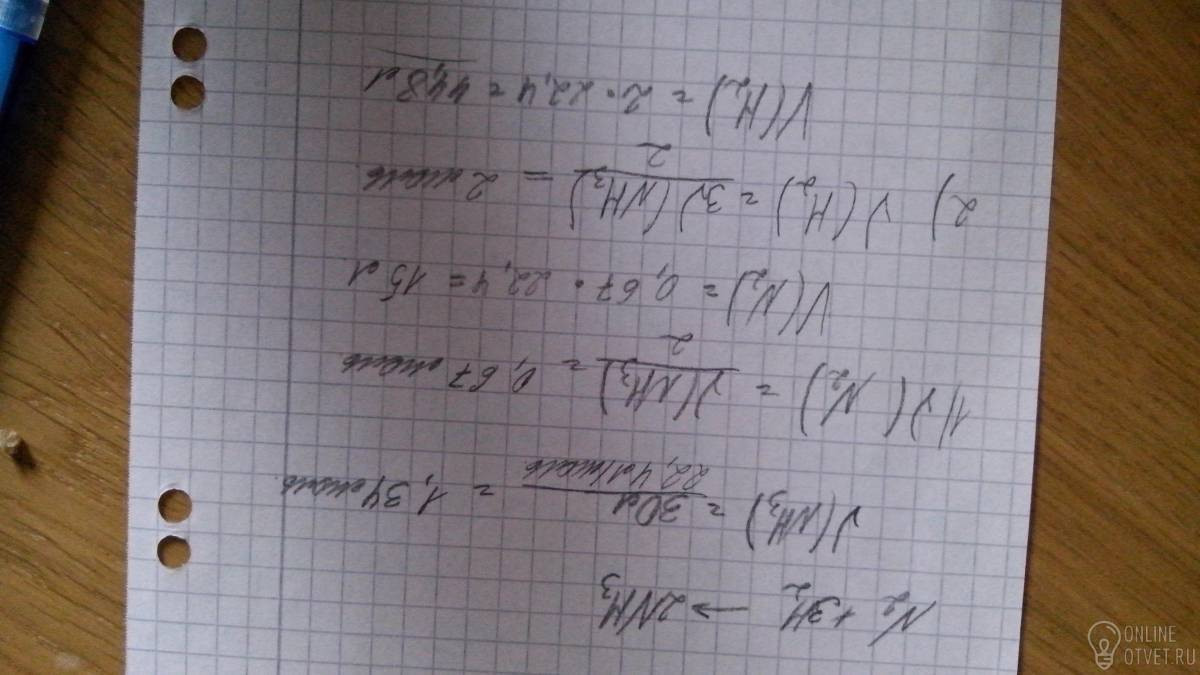 N₂ + 3H₂ → 2NH₃
ν(NH₃) = 30л / 22,4л/моль = 1,34 моль
1) ν(N₂) = ν(NH₃) / 2 = 0,67 моль
V(N₂) = 0,67 · 22,4 = 15 л
2) ν(H₂) = 3ν(NH₃) / 2 = 2 моль
V(H₂) = 2 · 22,4 = 44,8 л
ONLINE
OTVET.RU